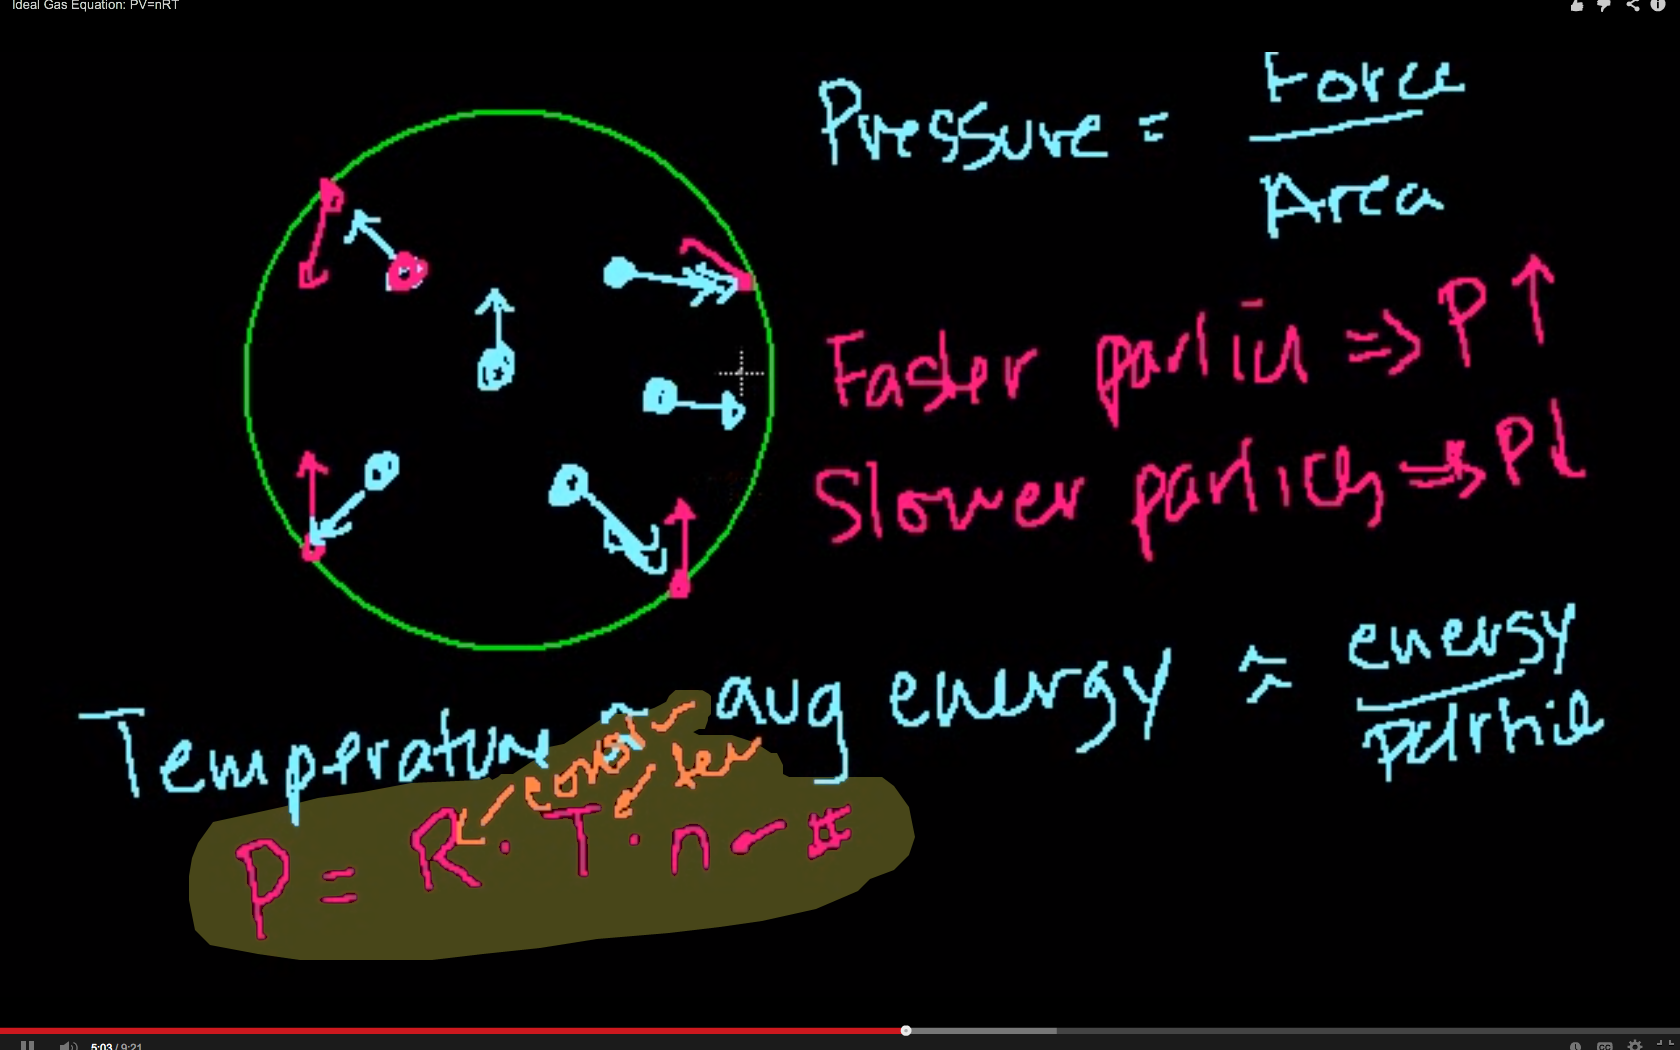 Ideal Gas Equation: PV=nRT
Pressure = Force
Area
Faster particl ⇒ P ↑
Slower particles ⇒ P ↓
Temperature ≈ avg energy ≈ energy
particle
const
tem
P = R · T · n ← #
5:03 / 9:21